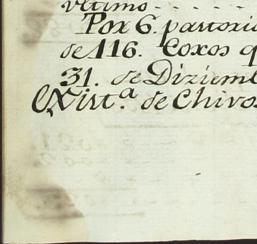 vltimo - - - - -
Por 6. partori
de 116. Coxos q
31. de Diziem
Christ.ª de Chivos